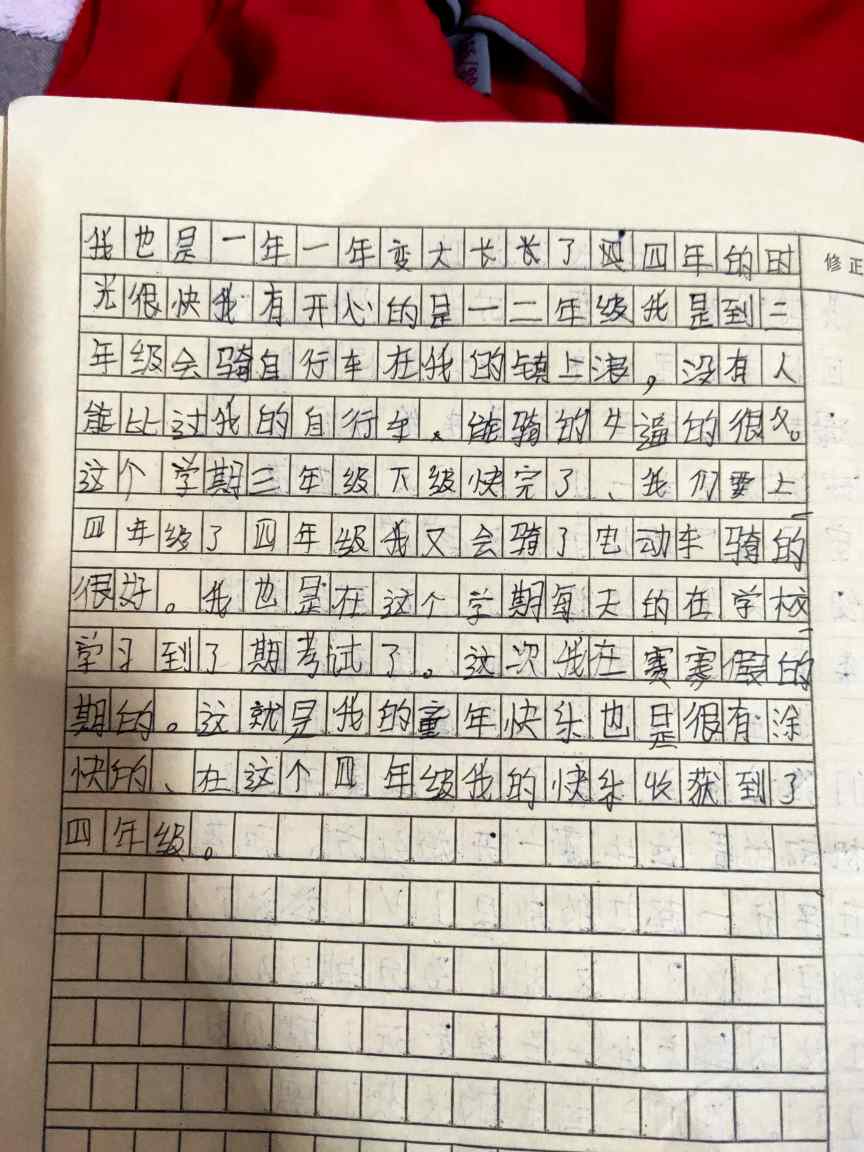 我也是一年一年变大长长了四年的时
光很快我有开心的是一二年级我是到三
年级会骑自行车在我的镇上浪，没有人
能比过我的自行车、能骑的牛逼的很
这个学期三年级下级快完了、我们要上
四年级了四年级我又会骑了电动车骑的
很好。我也是在这个学期每天的在学校
学习到了期考试了。这次我在寒假的
期的。这就是我的童年快乐也是很有涂
快的、在这个四年级我的快乐收获到了
四年级。
修正